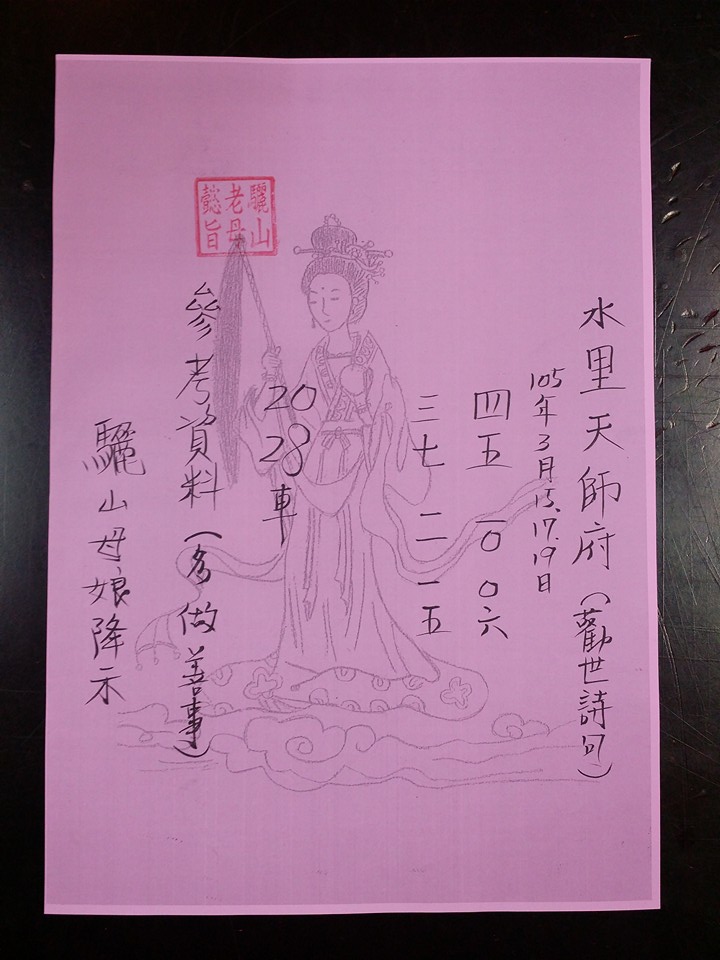 水里天師府(勸世詩句)
105年3月15.17.19日
四五 一0 0六
三七 二 一五
20
28車
驪山
老母
懿旨
參考資料(多做善事)
驪山母娘降示